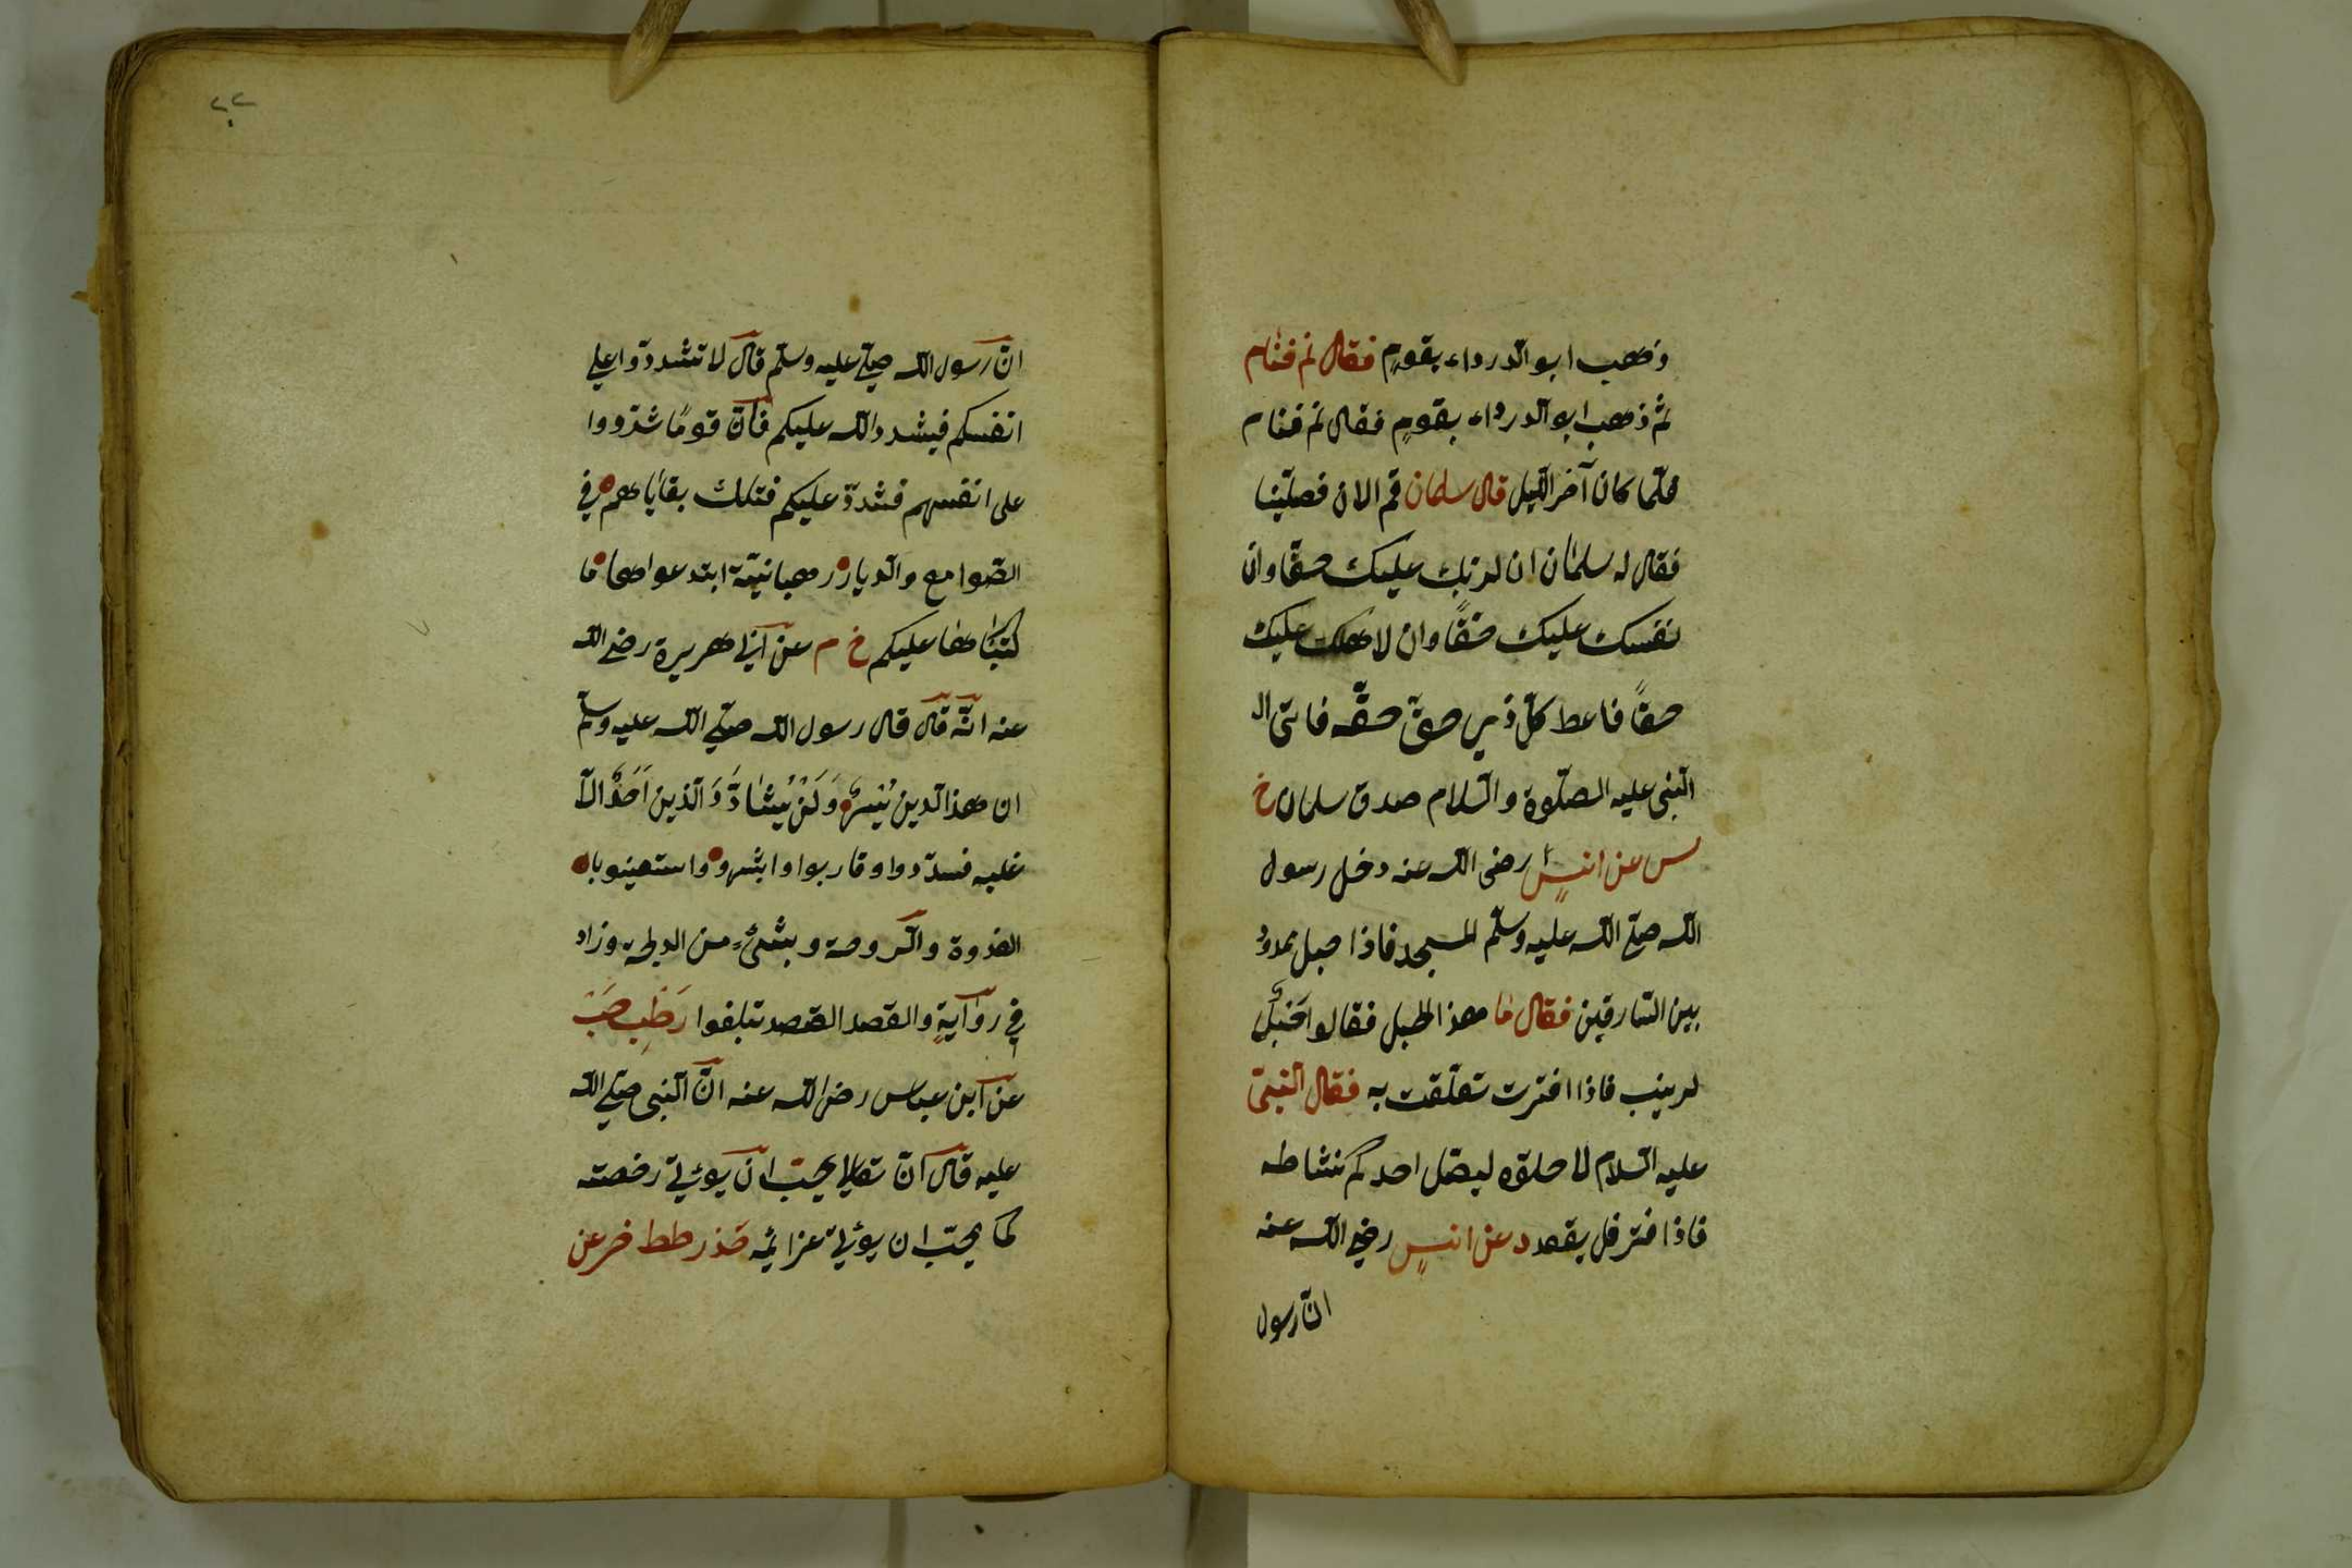 وذهب ابو الدرداء بقوم فقال نم فنام
ثم ذهب ابو الدرداء بقوم فقال نم فنام
فلمّا كان آخر الليل قال سلمان قم الان فصلّينا
فقال له سلمان ان لربك عليك حقّا وان
نفسك عليك حقًّا وان لاهلك عليك
حقًّا فاعط كلّ ذي حقّ حقّه فاتى ال
النبى عليه الصلّوة والسّلام صدق سلمان خ
س عن انسٍ رضى الله عنه دخل رسول
الله صلّى الله عليه وسلّم المسجد فاذا حبل ممدود
بين السّارقين فقال ما هذا الحبل فقالوا حَبْلٌ
لزينب فاذا افترت تعلّقت به فقال النبىّ
عليه السّلام لا حلوّه ليصّل احدكم نشاطه
فاذا فتر فل يقعد د عن انسٍ رضى الله عنه
انّ رسول
٢٢
انّ رسول الله صلّى عليه وسلّم قال لا تشددّوا على
انفسكم فيشدد الله عليكم فانّ قومًا شدّدوا
على انفسهم فشددّ عليكم فتلك بقاياهم في
الصّوامع والدّيار رهبانيّة ابتدعواها ما
كتبناها عليكم خ م عن ابى هريرة رضى الله
عنه انّه قال قال رسول الله صلّى الله عليه وسلّم
ان هذا الّدين يُيسرٌ وَلَنْ يُشادَّ وَ الّذين اَحَدٌ الّا
غلبه فسدّدوا وقاربوا وابشروا واستعينو بال
الغدوة والّروحة وبشئٍ من الدلجة وزاد
في روايةٍ والقصد القصد تبلغوا رَطِب حَبّ
عن ابن عباس رضى الله عنه انّ النبى صلّى الله
عليه قال انّ تعالى يحبّ ان يوئتى رخصته
كما يحبّ ان يوئتى عزائمه حَدْ رطط خز عن